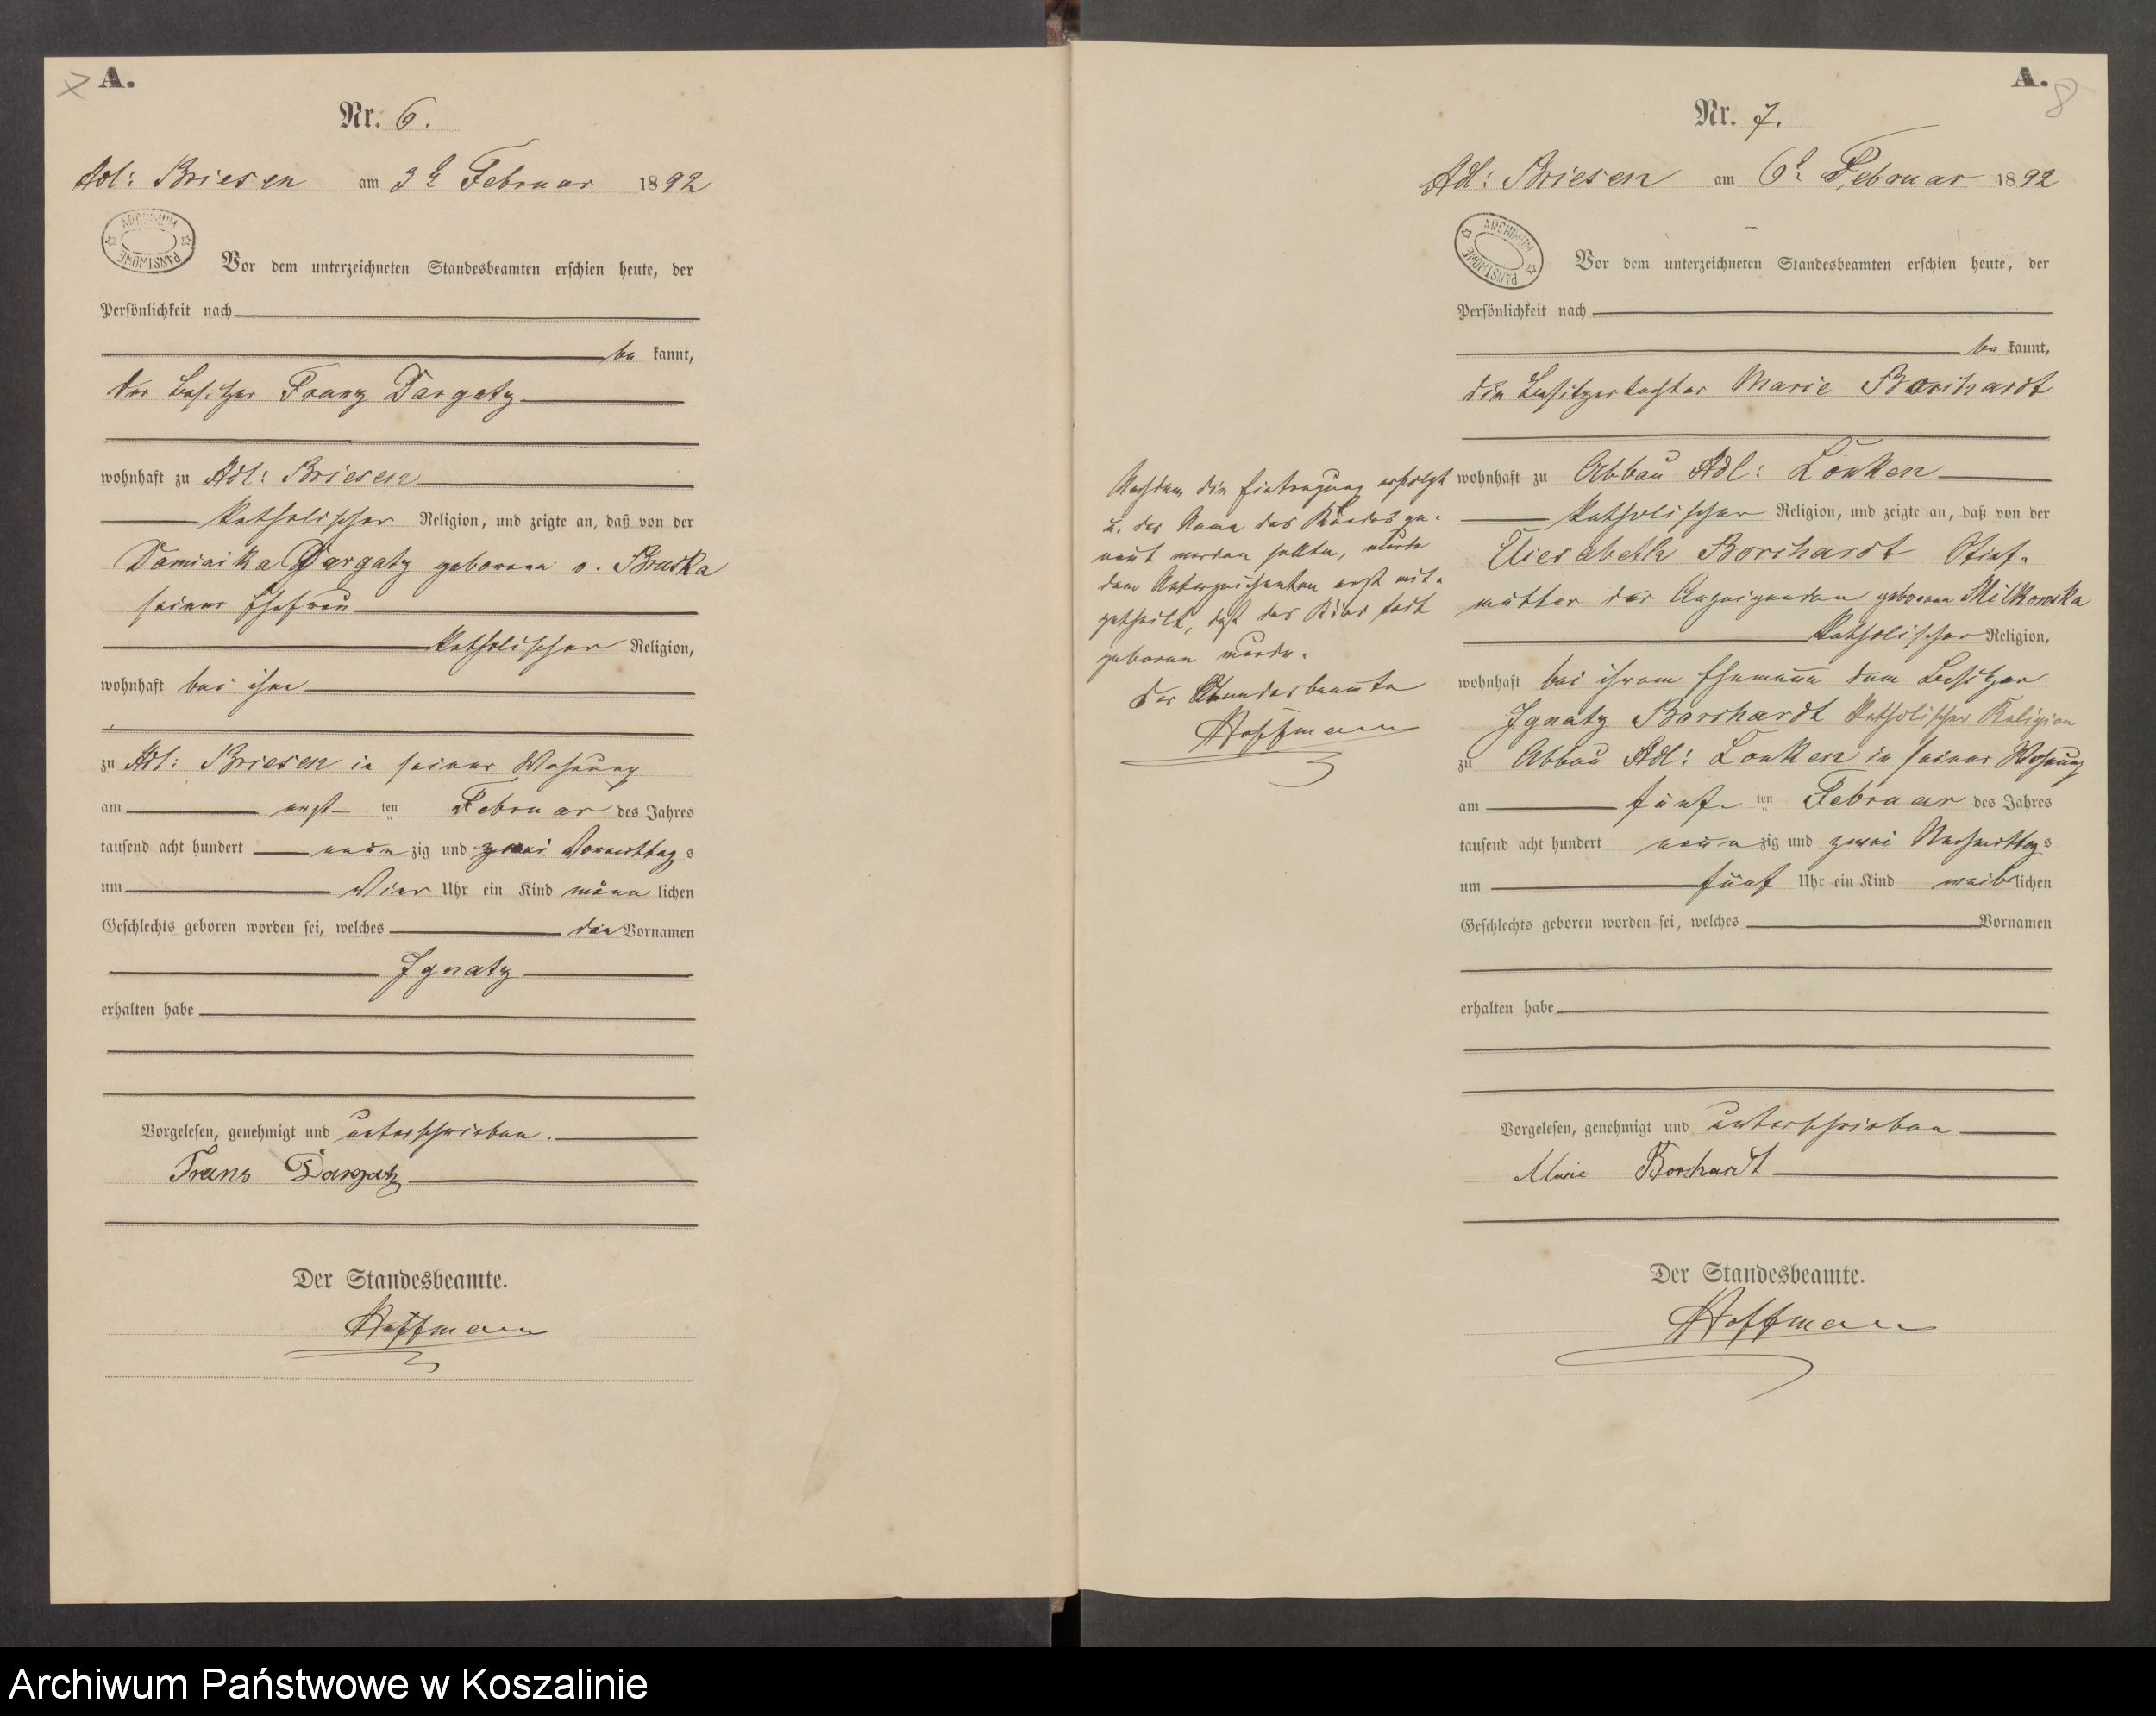 7
A.
Nr. 6.
Adl: Briesen am 3t Februar 1892
ARCHIWUM PAŃSTWOWE
Vor dem unterzeichneten Standesbeamten erschien heute, der
Persönlichkeit nach
be kannt,
der Besitzer Franz Dargatz
wohnhaft zu Adl: Briesen
katholischer Religion, und zeigte an, daß von der
Dargatz geborene v. Bruska
seiner Ehefrau
katholischer Religion,
wohnhaft bei ihm
zu Adl: Briesen in seiner Wohnung
am erst ten Februar des Jahres
tausend acht hundert neun zig und zwei Vormittag s
um Vier Uhr ein Kind männ lichen
Geschlechts geboren worden sei, welches den Vornamen
Ignatz
erhalten habe
Vorgelesen, genehmigt und unterschrieben.
Franz Dargatz
Der Standesbeamte.
Hoffmann
A.
8
Nr. 7.
Adl: Briesen am 6t Februar 1892
ARCHIWUM PAŃSTWOWE
Vor dem unterzeichneten Standesbeamten erschien heute, der
Persönlichkeit nach
be kannt,
die Besitzertochter Marie Borchardt
wohnhaft zu Abbau Adl: Lonken
katholischer Religion, und zeigte an, daß von der
Elisabeth Borchardt Stief-
mutter der Anzeigenden geborene Milkowska
katholischer Religion,
wohnhaft bei ihrem Ehemann dem Besitzer
Ignatz Borchardt katholischer Religion
zu Abbau Adl: Lonken in seiner Wohnung
am fünf ten Februar des Jahres
tausend acht hundert neun zig und zwei Nachmittag s
um fünf Uhr ein Kind weib lichen
Geschlechts geboren worden sei, welches Vornamen
erhalten habe
Vorgelesen, genehmigt und unterschrieben
Marie Borchardt
Der Standesbeamte.
Hoffmann
Nachdem die Eintragung erfolgt
u. der Name des Kindes ge-
nannt werden sollte, wurde
dem Unterzeichneten erst mit-
getheilt, daß das Kind todt
geboren wurde.
Der Standesbeamte
Hoffmann
Archiwum Państwowe w Koszalinie